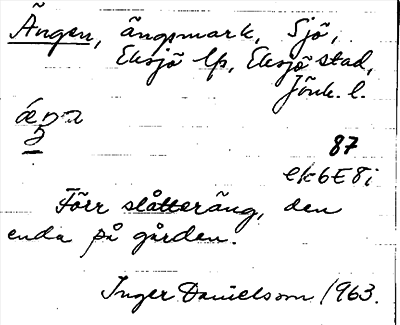 Ängen, ängsmark, Sjö,
Eksjö lfs, Eksjö stad,
Jönk. l.
87
ek6E8i
Förr slåtteräng, den
enda på gården.
Inger Danielsson 1963.